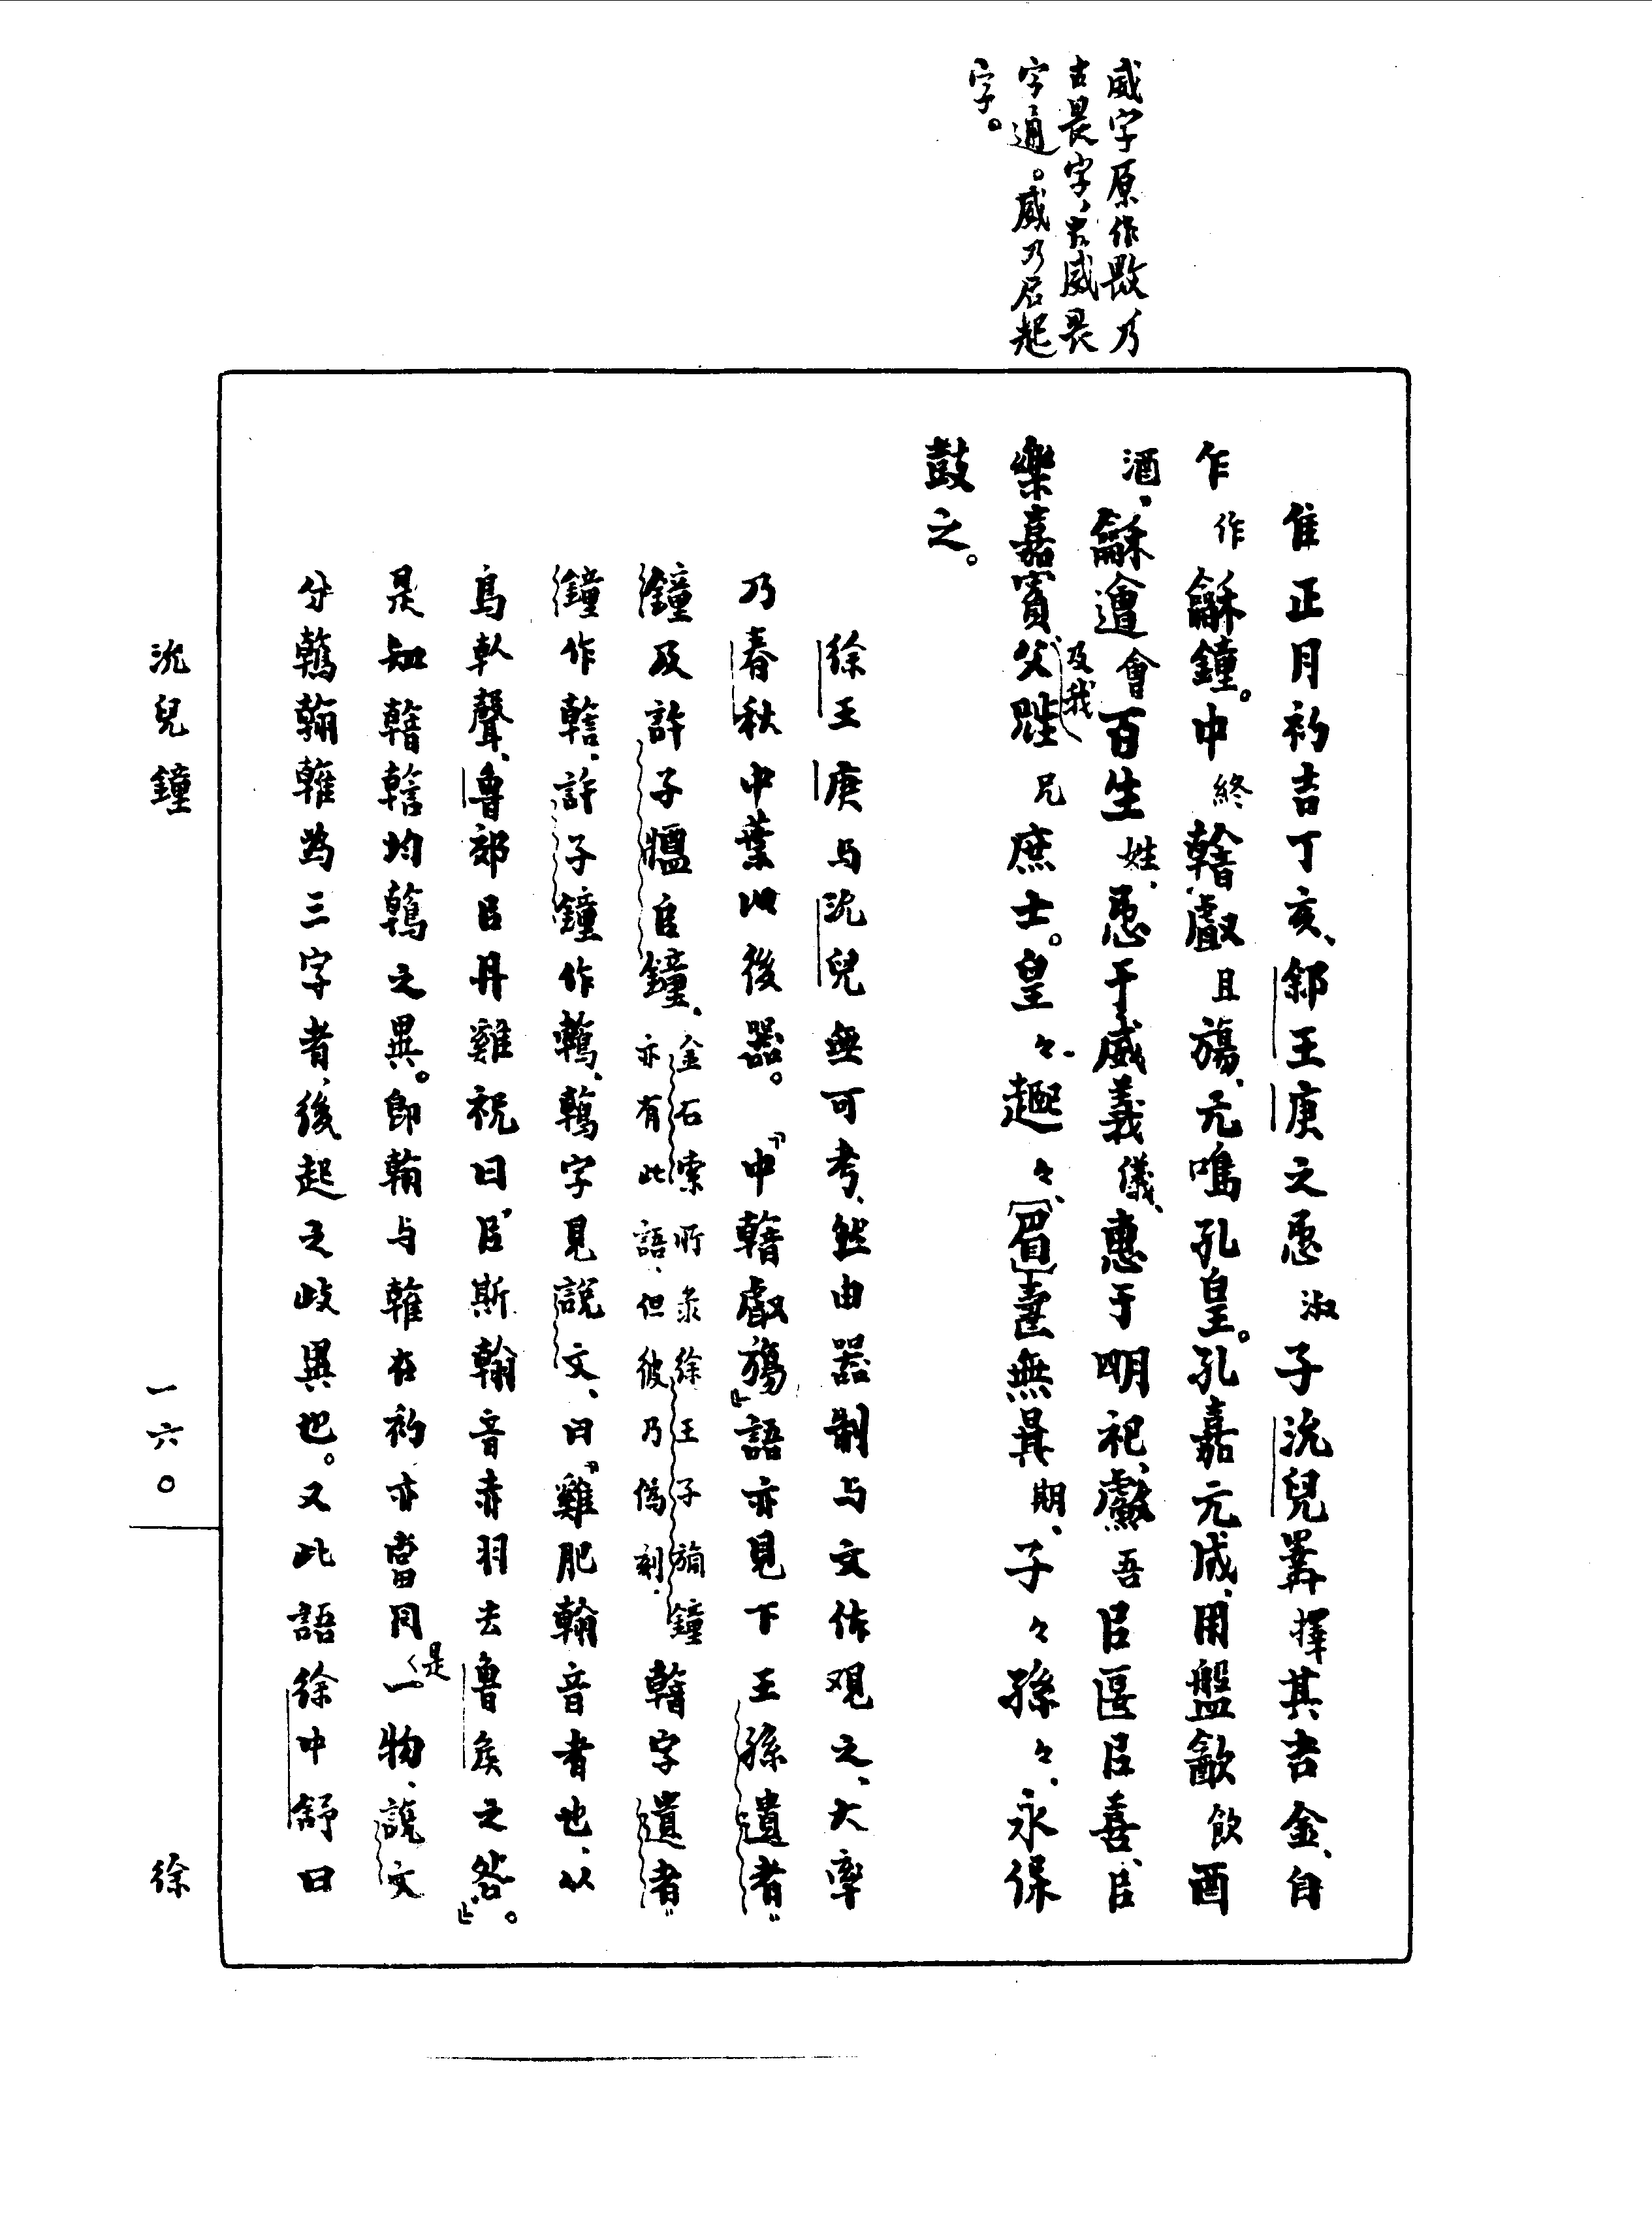 威字原作𢾭乃
古畏字,古威畏
字通。威乃后起
字。
隹正月初吉丁亥、䣄王庚之悊淑子沇兒羃擇其吉金、自
乍作龢鐘。中終䪩𠭯且鍚、元鳴孔皇。孔嘉元成、用盤歓飲酉
酒、龢遣會百生姓、悊于威義儀、惠于明祀、𫊣吾㠯匽㠯喜、㠯
樂嘉賓、及我父𨈡兄庶士。皇々趩々、[眉]壽無㫷期、子々孫々、永保
鼓之。
徐王庚与沇兒無可考、然由器制与文体观之、大率
乃春秋中葉以後器。「中䪩𠭯鍚」語亦見下王孫遺者
鐘及許子𤖅𠂤鐘、金石索所录徐王子旃鐘亦有此語、但彼乃偽刻.䪩字遺者
鐘作、許子鐘作鶾、鶾字見説文、曰「雞肥翰音者也、从
鳥倝聲、魯郊㠯丹雞祝曰、㠯斯翰音赤羽去魯矦之咎」。
是知䪩均鶾之異。即翰与雗在初亦當是同一物、説文
分鶾翰雗為三字者、後起之歧異也。又此語徐中舒曰
沇兒鐘
一六〇
徐